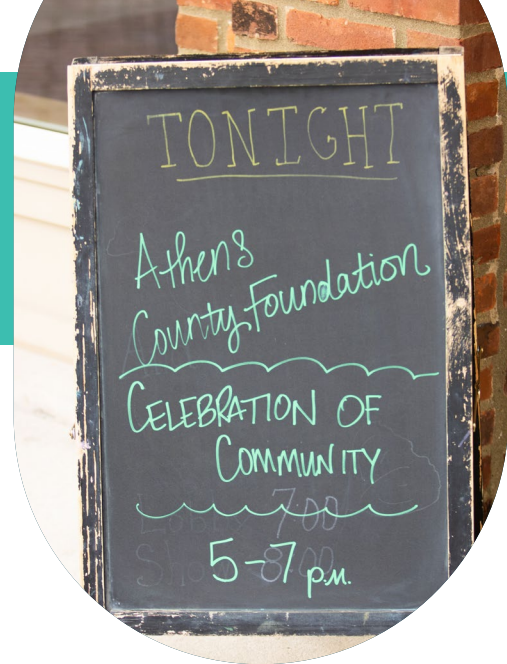 TONIGHT
Athens
County Foundation
CELEBRATION OF
COMMUNITY
7:00
5-7 p.m.
8:00